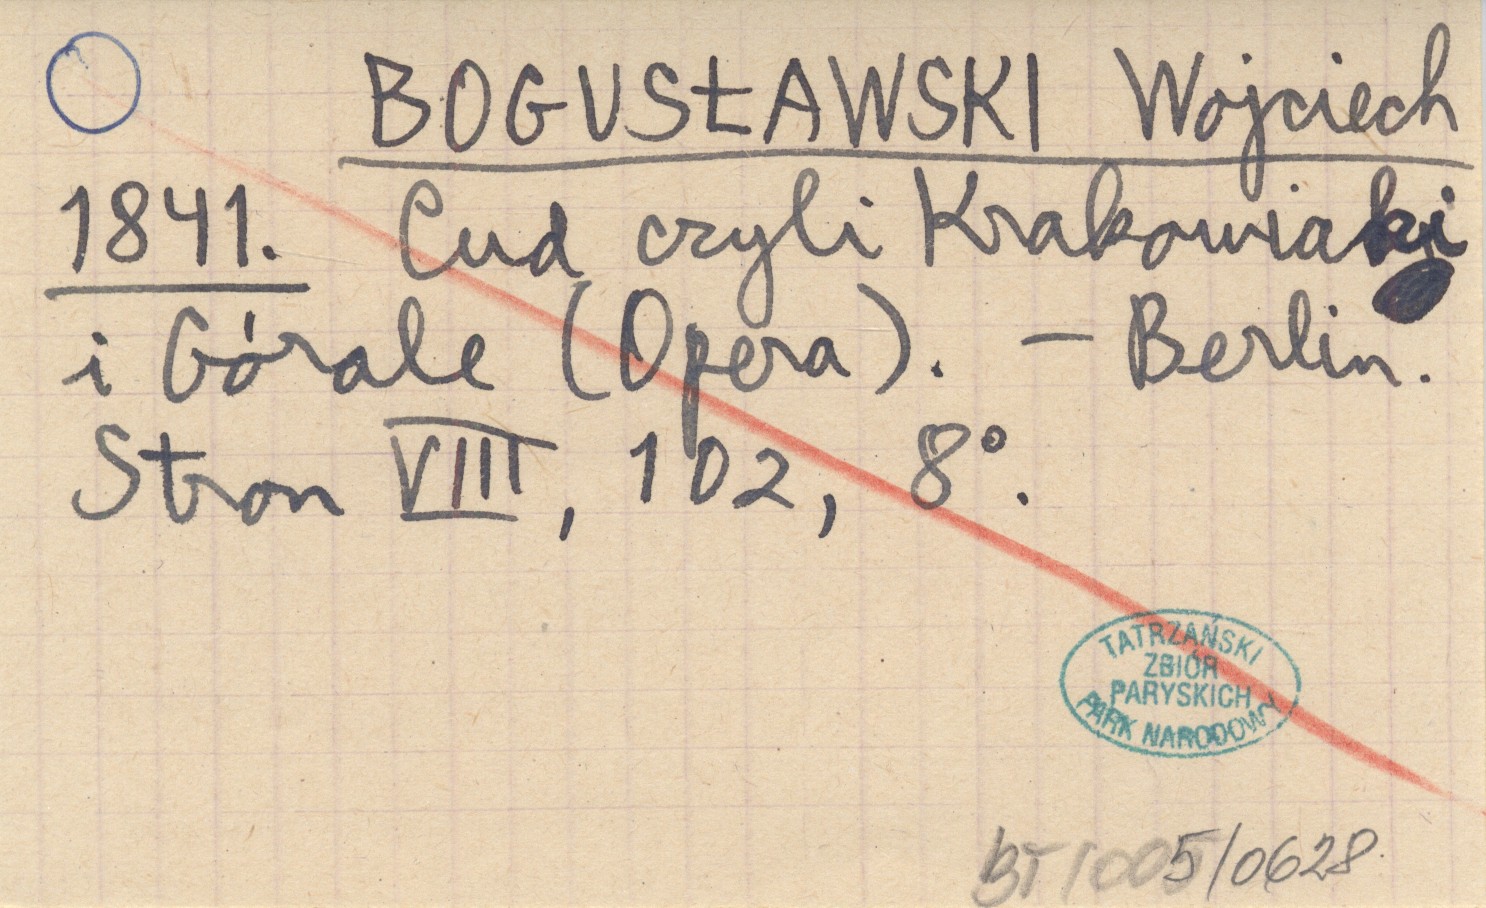 BOGUSŁAWSKI Wojciech
1841. Cud czyli Krakowiaki
i Górale (Opera). — Berlin.
Stron VIII, 102, 8°.
TATRZAŃSKI
ZBIÓR
PARYSKICH
PARK NARODOWY
BT/005/0628